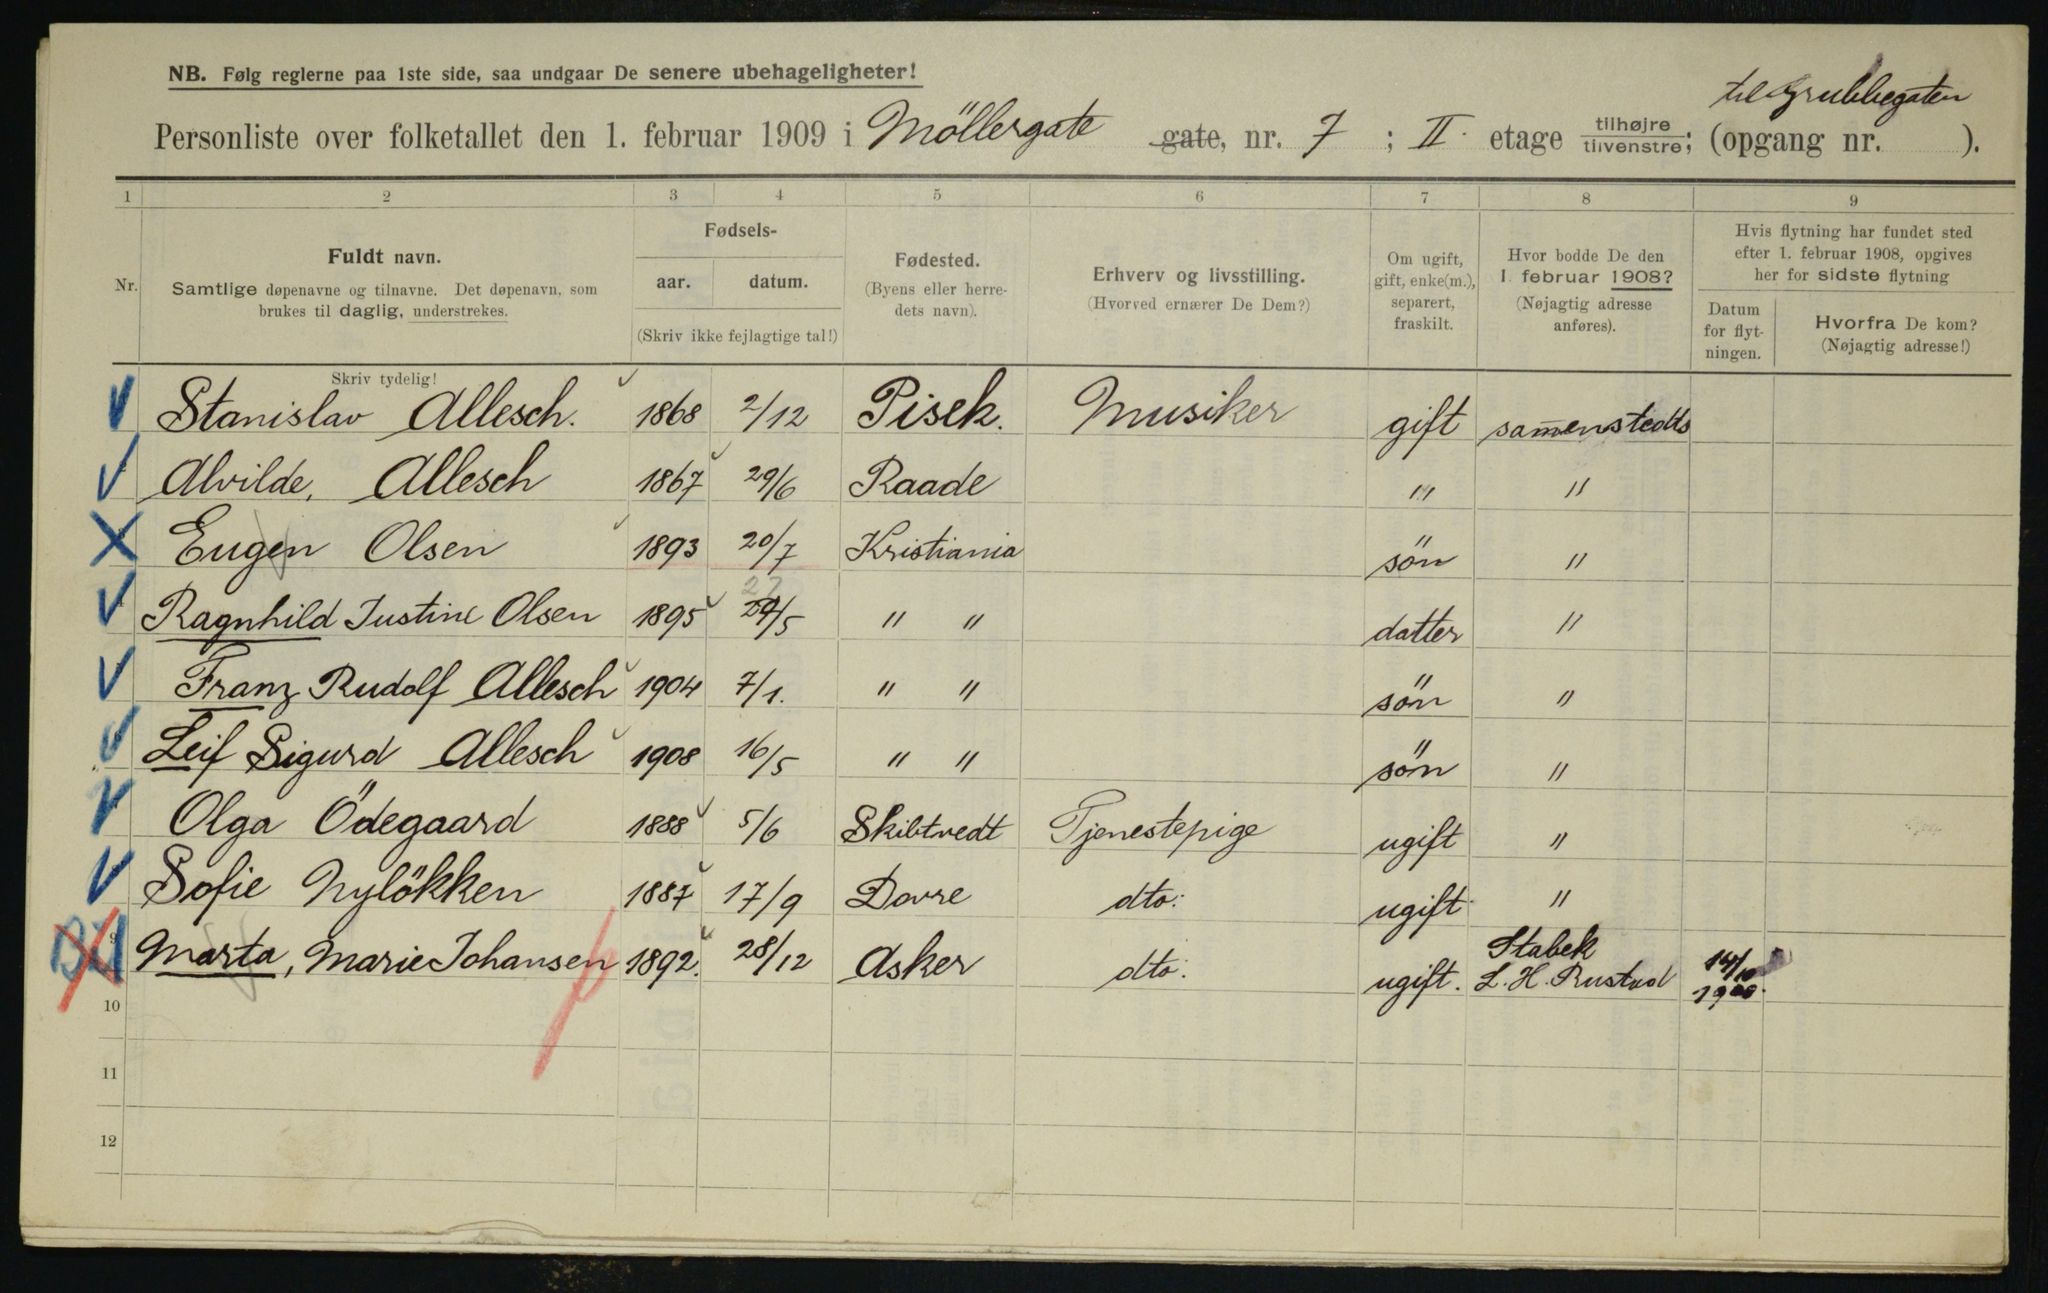 NB. Følg reglerne paa 1ste side, saa undgaar De senere ubehageligheter!
til Grubbegaten
Personliste over folketallet den 1. februar 1909 i Möllergate gate, nr. 7 ; II. etage tilhøjre tilvenstre; (opgang nr. ).
1 2 3 4 5 6 7 8 9
Nr.
Fuldt navn.
Samtlige døpenavne og tilnavne. Det døpenavn, som
brukes til daglig, understrekes.
Skriv tydelig!
Fødsels-
aar. datum.
(Skriv ikke fejlagtige tal!)
Fødested.
(Byens eller herre-
dets navn).
Erhverv og livsstilling.
(Hvorved ernærer De Dem?)
Om ugift,
gift, enke(m.),
separert,
fraskilt.
Hvor bodde De den
1. februar 1908?
(Nøjagtig adresse
anføres).
Hvis flytning har fundet sted
efter 1. februar 1908, opgives
her for sidste flytning
Datum
for flyt-
ningen.
Hvorfra De kom?
(Nøjagtig adresse!)
Stanislav Allesch. 1868 2/12 Pisek. Musiker gift sammenstedts
Alvilde, Allesch 1867 29/6 Raade " "
Eugen Olsen 1893 20/7 Kristiania sön "
22
Ragnhild Justine Olsen 1895 29/5 " " datter "
Franz Rudolf Allesch 1904 7/1. " " sön "
Leif Sigurd Allesch 1908 16/5 " " sön "
Olga Ödegaard 1888 5/6 Skibtvedt Tjenestepige ugift "
Sofie Nylökken 1887 17/9 Dovre dto: ugift "
9 Marta, Marie Johansen 1892. 28/12 Asker dto: ugift. Stabek
L. H. Rustad 14/10
1908.
10
11
12